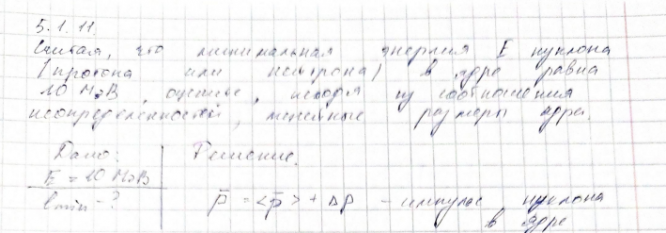 5.1.11.
Считая, что минимальная энергия E нуклона
(протона или нейтрона) в ядре равна
10 МэВ, оцените, исходя из соотношения
неопределенностей, линейные размеры ядра.
Дано: Решение.
E = 10 МэВ
lmin - ? p̄ = <p̄> + Δp - импульс нуклона
в ядре